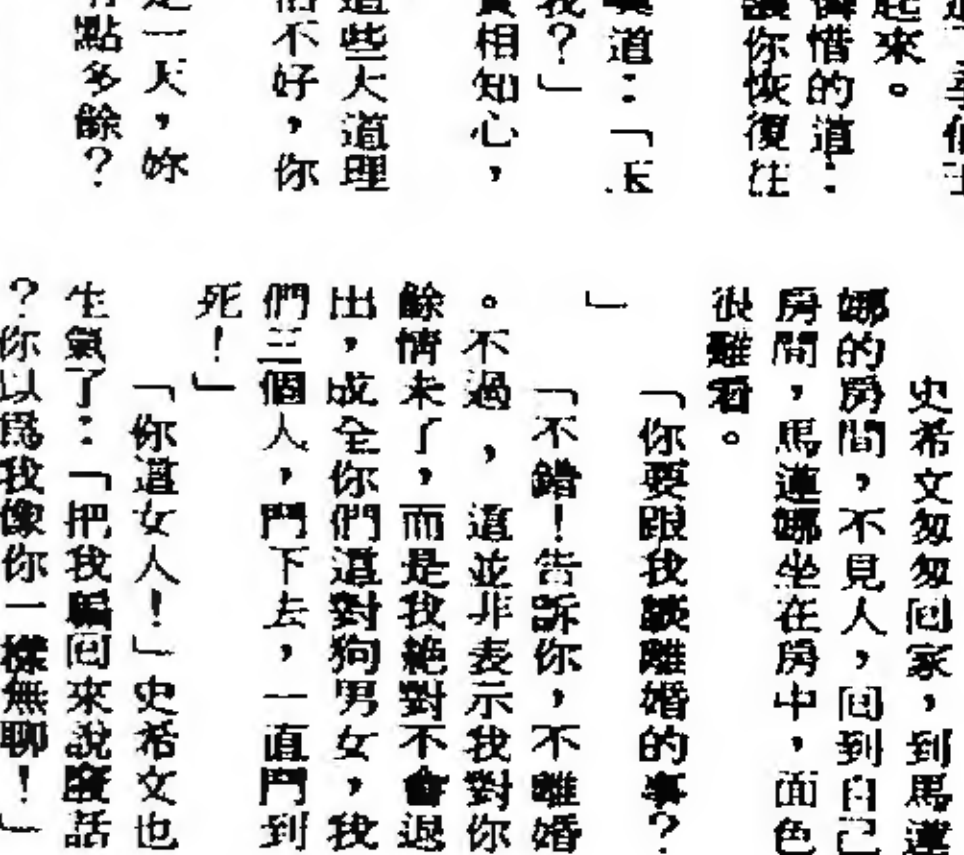 起來。
憐惜的道：
讓你恢復往
道：「玉
我？」
貴相知心，
這些大道理
不好，你
是一天，妳
點多餘？
史希文匆匆回家，到馬蓮
娜的房間，不見人，回到自己
房間，馬蓮娜坐在房中，面色
很難看。
「你要跟我談離婚的事？
」
「不錯！告訴你，不離婚
。不過，這並非表示我對你
餘情未了，而是我絕對不會退
出，成全你們這對狗男女，我
們三個人，鬥下去，一直鬥到
死！」
「你這女人！」史希文也
生氣了：「把我騙回來說廢話
？你以爲我像你一樣無聊！」